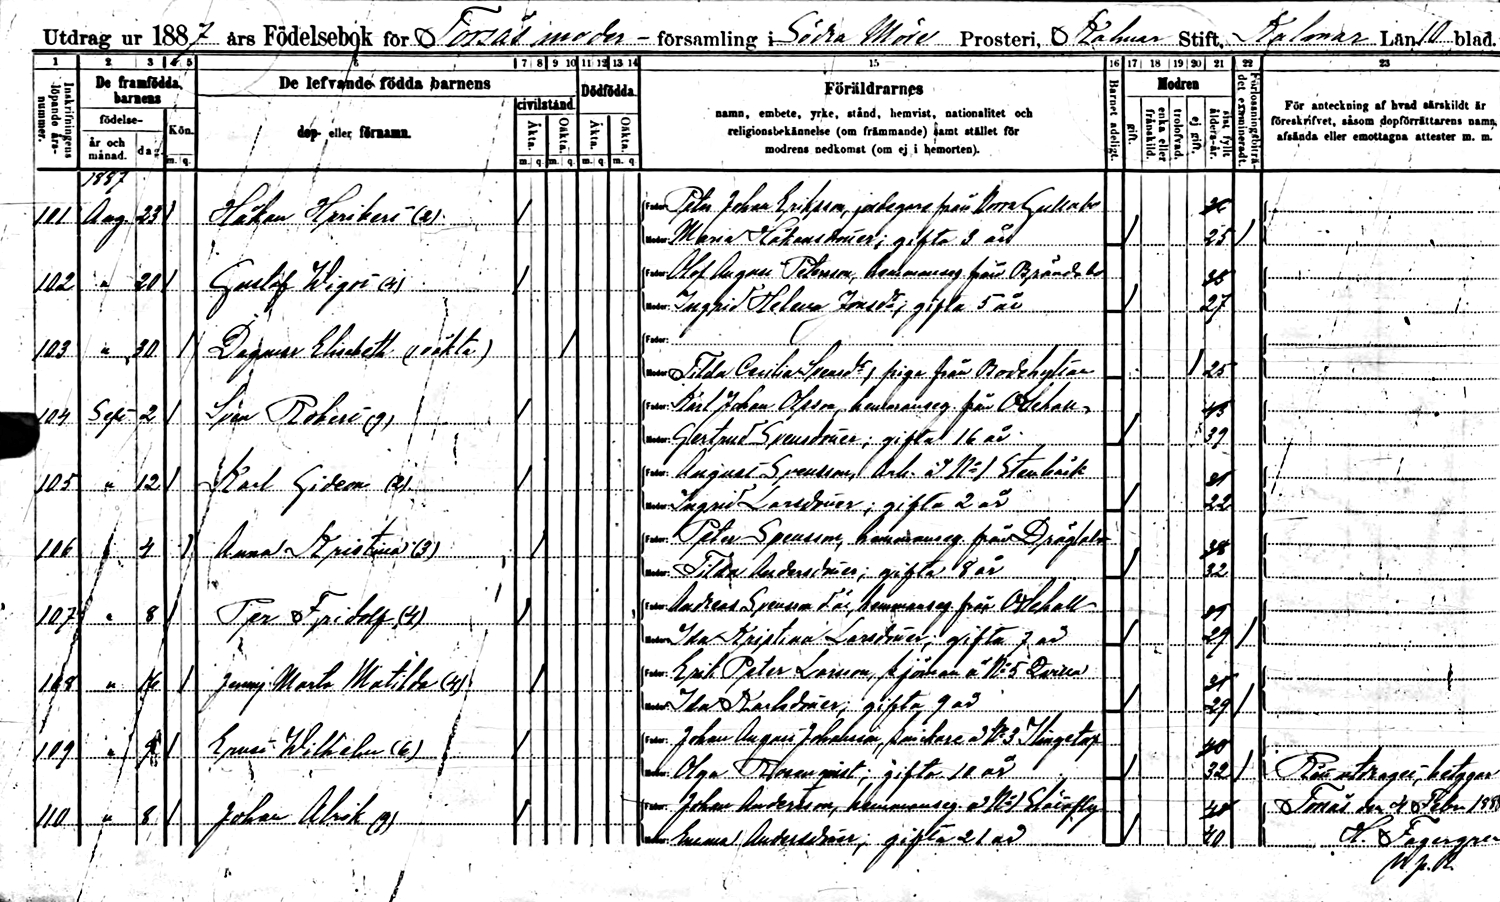 Utdrag ur 1887 års Födelsebok för Torsås moder- församling i Södra Möre Prosteri, Kalmar Stift, Kalmar Län 10 blad.
1 2 3 4 5 6 7 8 9 10 11 12 13 14 15 16 17 18 19 20 21 22 23
Inskrifningens löpande års-nummer.
De framfödda barnens
födelse-
år och månad.
dag
Kön.
m. q.
De lefvande födda barnens
dop- eller förnamn.
civilstånd.
Äkta. Oäkta.
m. q. m. q.
Dödfödda
Äkta. Oäkta.
m. q. m. q.
Föräldrarnes
namn, embete, yrke, stånd, hemvist, nationalitet och
religionsbekännelse (om främmande) samt stället för
modrens nedkomst (om ej i hemorten).
Barnet adeligt.
Modren
gift.
enka eller frånskild.
trolofvad.
ej gift.
sist fyllt ålders-år.
För anteckning af hvad särskildt är
föreskrifvet, såsom dopförrättarens namn,
afsända eller emottagna attester m. m.
1887
101 Aug. 23 / Håkan Heribert (2) / Fader: Peter Johan Eriksson, jordegare från Norra Gullabo
Moder: Maria Håkansdotter; gifta 3 år / 25 /
102 " 20 / Gustaf Wigot (4) / Fader: Olof August Peterson, hemmanseg från Brändabo
Moder: Ingrid Helena Jonsdr; gifta 5 år / 27
103 " 30 / Dagmar Elisabeth (oäkta) / Fader:
Moder: Tilda Cecilia Svensdr, piga från Bodahyltan / 25
104 Sept 2 / Sven Robert (7) / Fader: Karl Johan Olsson, hemmanseg från
Moder: Gertrud Svensdotter; gifta 16 år / 39
105 " 12 / Karl Gideon (2) / Fader: August Svensson, Arb. å No 1 Stenbäck
Moder: Ingrid Larsdotter; gifta 2 år / 22
106 " 4 / Anna Kristina (3) / Fader: Peter Svensson, hemmanseg från
Moder: Tilda Andersdotter; gifta 8 år / 32
107 " 8 / Per Fridolf (4) / Fader: Andreas Svensson hemmanseg från
Moder: Ida Kristina Larsdotter; gifta 7 år / 29 /
108 " 16 / Jenny Marta Matilda (4) / Fader: Erik Peter Larsson, sjöman å No 5
Moder: Ida Karlsdotter; gifta 9 år / 29 /
109 " 9 / Ernst Wilhelm (6) / Fader: Johan August Johanson, snickare å No 3
Moder: Olga Rosenqvist; gifta 10 år / 32 / Rätt utdraget, betygar
110 " 8 / Johan Alrik (9) / Fader: Johan Andersson, hemmanseg å No 1 Torsås den 4 Febr 1888
Moder: Emma Andersdotter; gifta 21 år / 40 H. Fagergren